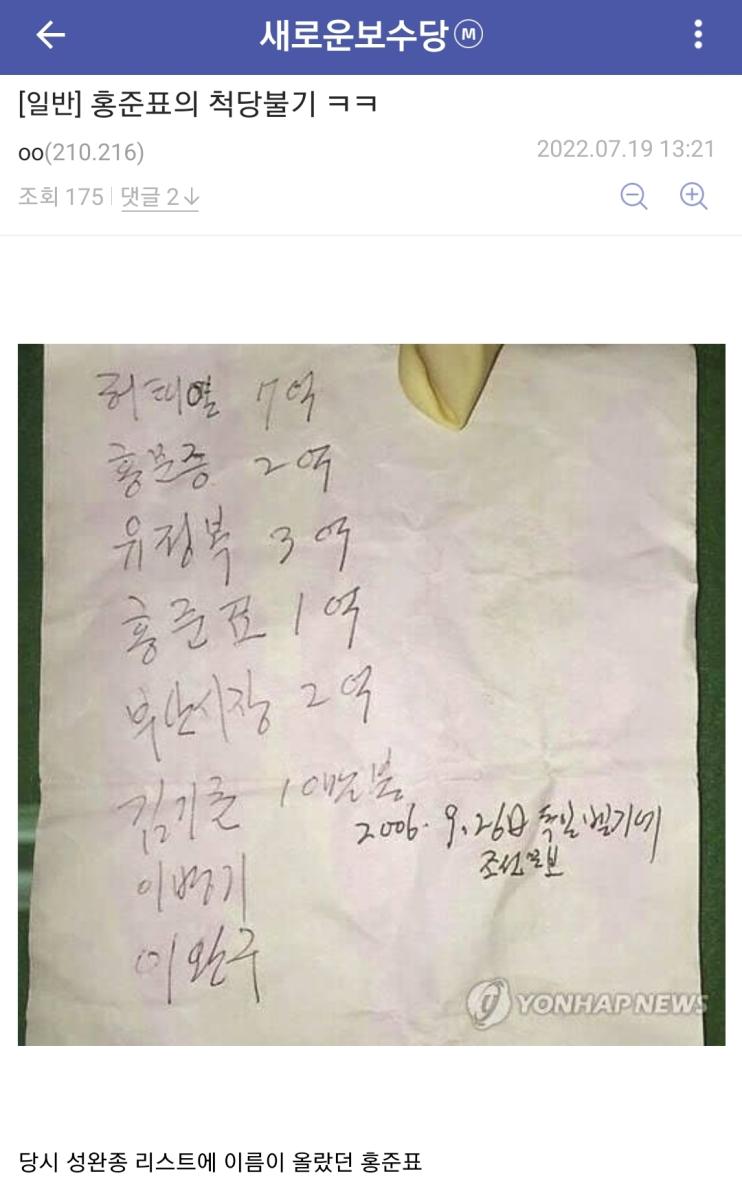 새로운보수당 M
[일반] 홍준표의 척당불기 ㅋㅋ
oo(210.216)
2022.07.19 13:21
조회 175 | 댓글 2↓
허태열 7억
홍문종 2억
유정복 3억
홍준표 1억
부산시장 2억
김기춘 10만불
2006. 9. 26日 독일 벨기에
조선일보
이병기
이완구
YONHAPNEWS
당시 성완종 리스트에 이름이 올랐던 홍준표